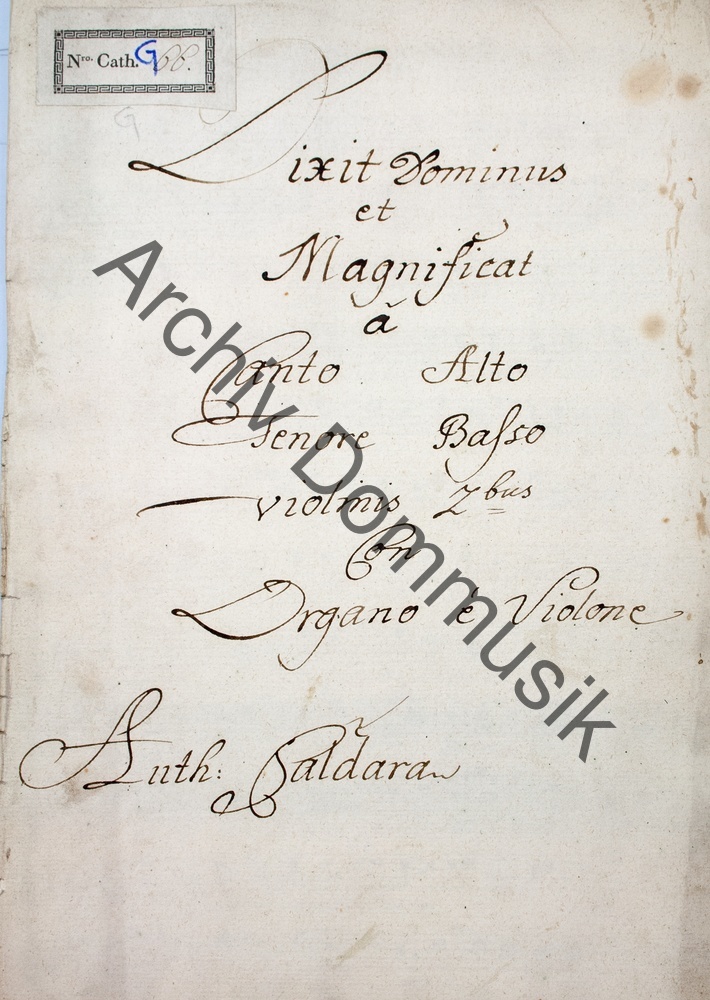 Nro. Cath. G 66.
G
Dixit Dominus
et
Magnificat
à
Canto Alto
Tenore Baſso
violinis 2bus
Con
Organo è Violone
Auth: Caldara
Archiv Dommusik